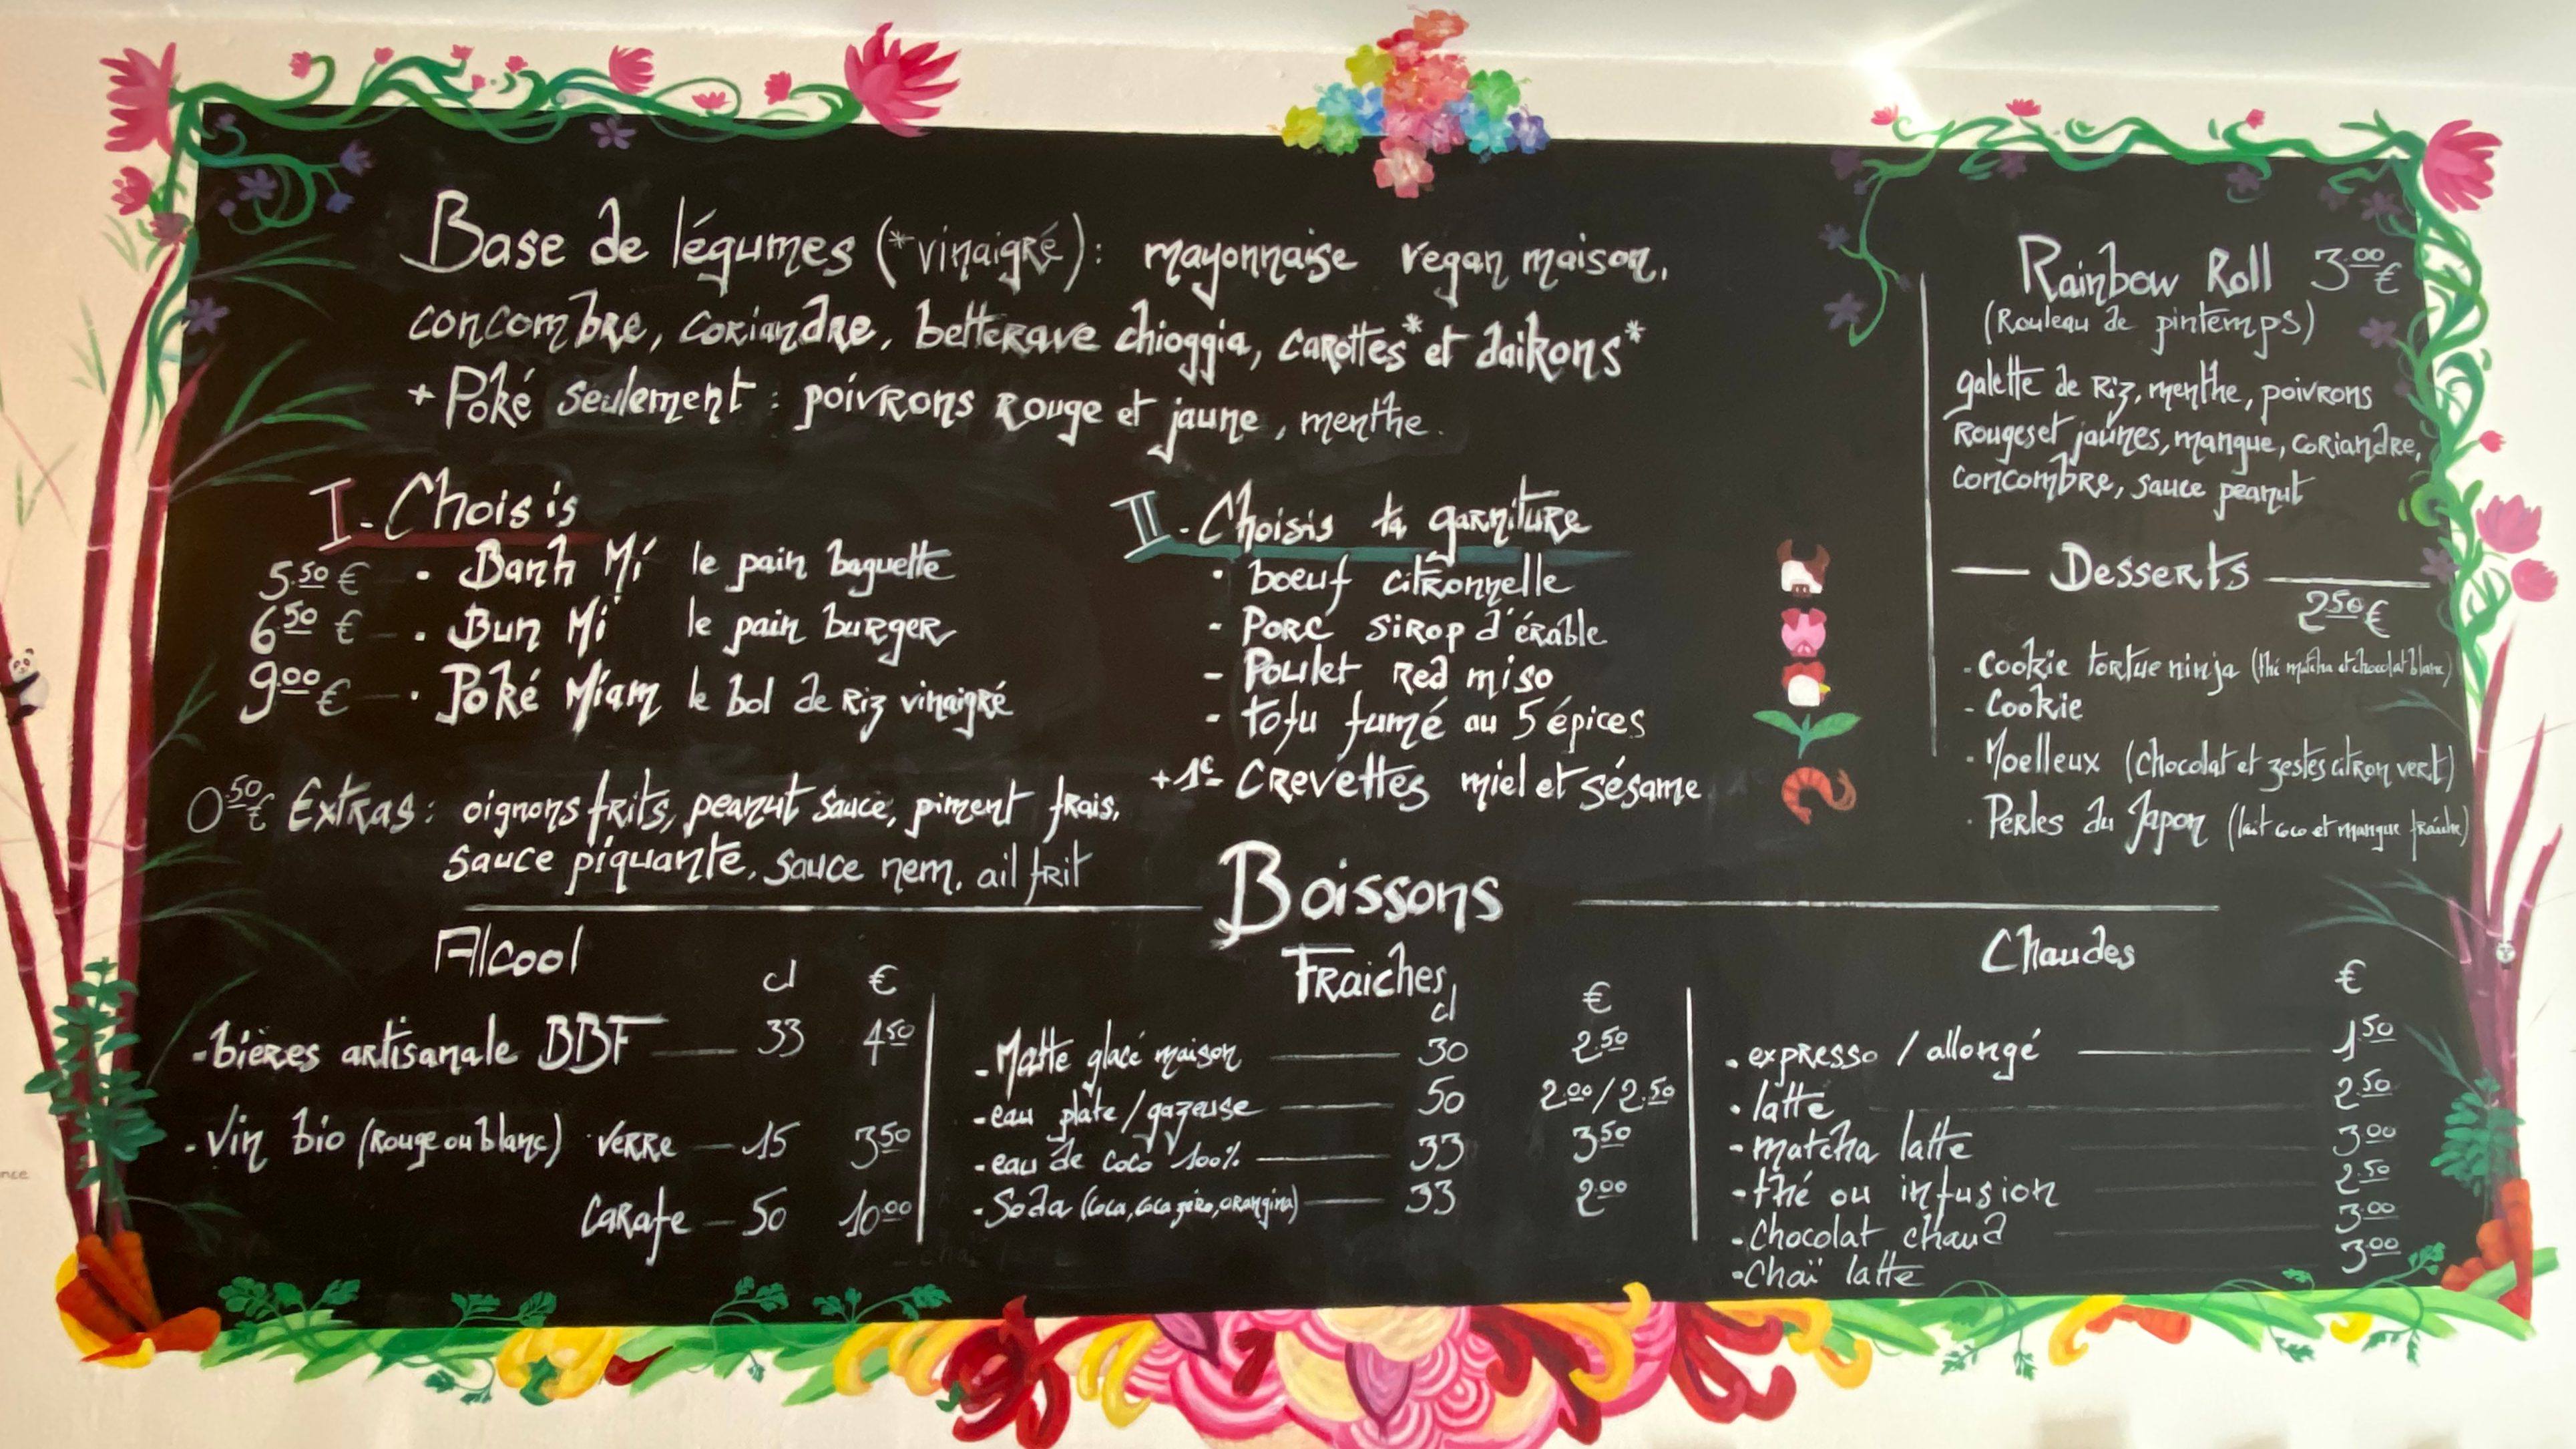 Base de légumes (*vinaigré): mayonnaise vegan maison,
concombre, coriandre, betterave chioggia, carottes* et daikons*
+ Poké seulement : poivrons rouge et jaune, menthe.
I - Choisis
5.50 € • Banh Mi le pain baguette
6.50 € - • Bun Mi le pain burger
9.00 € - • Poké Miam le bol de riz vinaigré
0.50€ Extras : oignons frits, peanut sauce, piment frais,
sauce piquante, sauce nem, ail frit
II - Choisis ta garniture
• boeuf citronnelle
- Porc sirop d'érable
- Poulet red miso
- tofu fumé au 5 épices
+1€ - Crevettes miel et sésame
Rainbow Roll 3.00 €
(Rouleau de pintemps)
galette de riz, menthe, poivrons
rouges et jaunes, mangue, coriandre,
concombre, sauce peanut
Desserts
2.50 €
- Cookie tortue ninja (thé matcha et chocolat blanc)
- Cookie
• Moelleux (chocolat et zestes citron vert)
• Perles du Japon (lait coco et mangue fraîche)
Boissons
Alcool
cl €
- bières artisanale BBF 33 4.50
- vin bio (rouge ou blanc) verre 15 3.50
Carafe 50 10.00
Fraiches
cl €
- Matte glacé maison 30 2.50
- eau plate/gazeuse 50 2.00/2.50
- eau de coco 100% 33 3.50
- Soda (coca, coca zéro, orangina) 33 2.00
Chaudes
€
• expresso / allongé 1.50
• latte 2.50
- matcha latte 3.00
- thé ou infusion 2.50
- Chocolat chaud 3.00
• Chaï latte 3.00